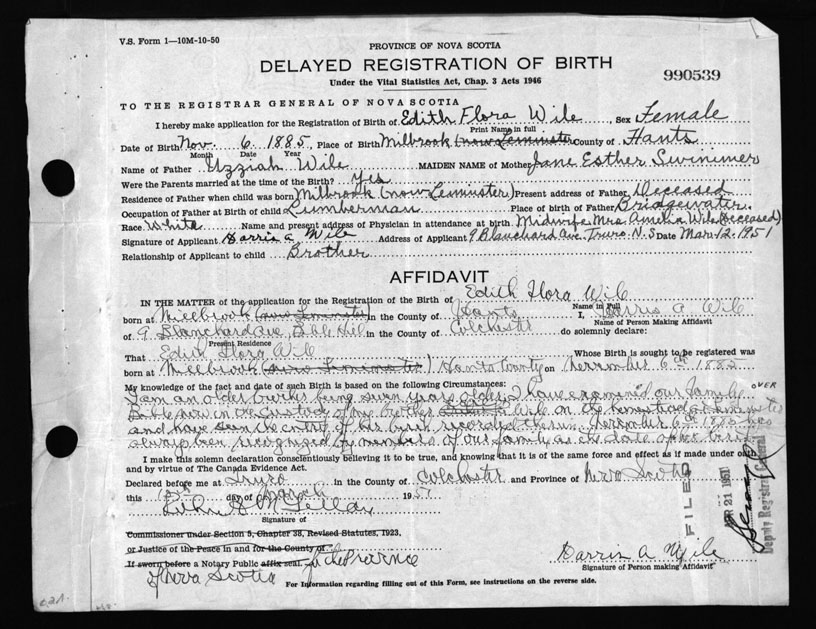 V.S. Form 1—10M-10-50
PROVINCE OF NOVA SCOTIA
DELAYED REGISTRATION OF BIRTH
Under the Vital Statistics Act, Chap. 3 Acts 1946
990539
TO THE REGISTRAR GENERAL OF NOVA SCOTIA
I hereby make application for the Registration of Birth of Edith Flora Wile, Sex Female
Print Name in full
Date of Birth Nov. 6 1885, Place of Birth Milbrook (now Leminster County of Hants
Month Date Year
Name of Father Uzziah Wile MAIDEN NAME of Mother Jane Esther Swinimer
Were the Parents married at the time of Birth? Yes
Residence of Father when child was born Milbrook (now Leminster) Present address of Father Deceased
Occupation of Father at Birth of child Lumberman Place of birth of Father Bridgewater.
Race White Name and present address of Physician in attendance at birth. Midwife Mrs. Amelia Wile (deceased)
Signature of Applicant Harris A Wile Address of Applicant 9 Blanchard Ave, Truro N.S Date Mar. 12. 1951
Relationship of Applicant to child Brother
AFFIDAVIT
IN THE MATTER of the application for the Registration of Birth of Edith Flora Wile
Name in Full
born at Millbrook (now Leminster) in the County of Hants I, Harris A Wile
Name of Person Making Affidavit
of 9 Blanchard Ave, Bible Hill in the County of Colchester do solemnly declare:
Present Residence
That Edith Flora Wile Whose Birth is sought to be registered was
born at Millbrook (now Leminster) Hants County on November 6th 1885
My knowledge of the fact and date of such Birth is based on the following Circumstances:
OVER
I am an older brother being seven years older. I have examined our family
Bible now in the custody of my brother Wile on the homestead at Leminster
and have seen the entry of her birth recorded therein. November 6th 1885 has
always been recognized by members of our family as the date of her birth.
I make this solemn declaration conscientiously believing it to be true, and knowing that it is of the same force and effect as if made under oath
and by virtue of The Canada Evidence Act.
Declared before me at Truro in the County of Colchester and Province of Nova Scotia
this day of March 1951
Signature of
Commissioner under Section 5, Chapter 38, Revised Statutes, 1923,
or Justice of the Peace in and for the County of
If sworn before a Notary Public affix seal. for the Province
of Nova Scotia
Harris A Wile
Signature of Person making Affidavit
For Information regarding filling out of this Form, see instructions on the reverse side.
FILED
APR 21 1951
Deputy Registrar General